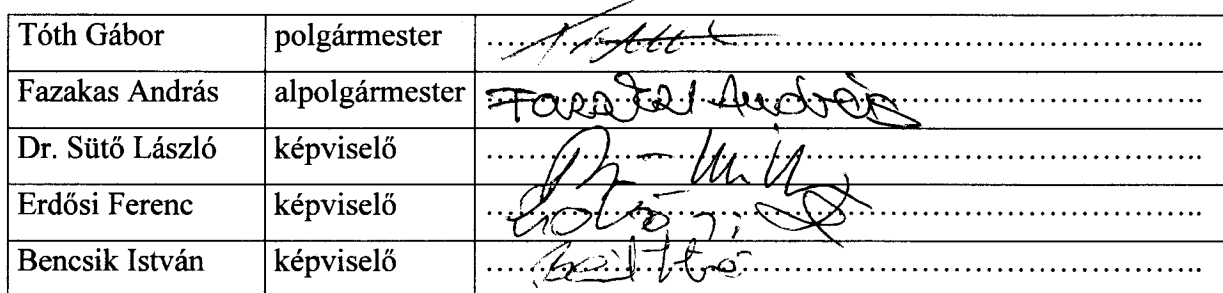 Tóth Gábor polgármester ....................
Fazakas András alpolgármester Fazakas András
Dr. Sütő László képviselő ....................
Erdősi Ferenc képviselő ....................
Bencsik István képviselő ....................